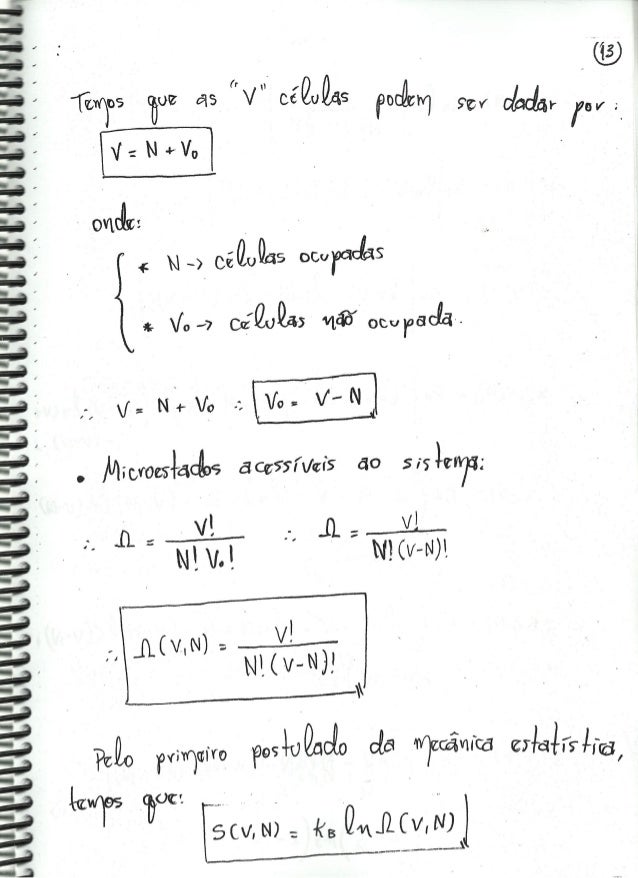 (13)
Temos que as "V" células podem ser dadar por:
V = N + V₀
onde:
* N -> células ocupadas
* V₀ -> células não ocupada.
∴ V = N + V₀ ∴ V₀ = V - N
• Microestados acessíveis ao sistema:
∴ Ω = V! / N! V₀! ∴ Ω = V! / N! (V-N)!
∴ Ω(V,N) = V! / N! (V-N)!
Pelo primeiro postulado da mecânica estatística,
temos que:
S(V,N) = k_B ln Ω(V,N)